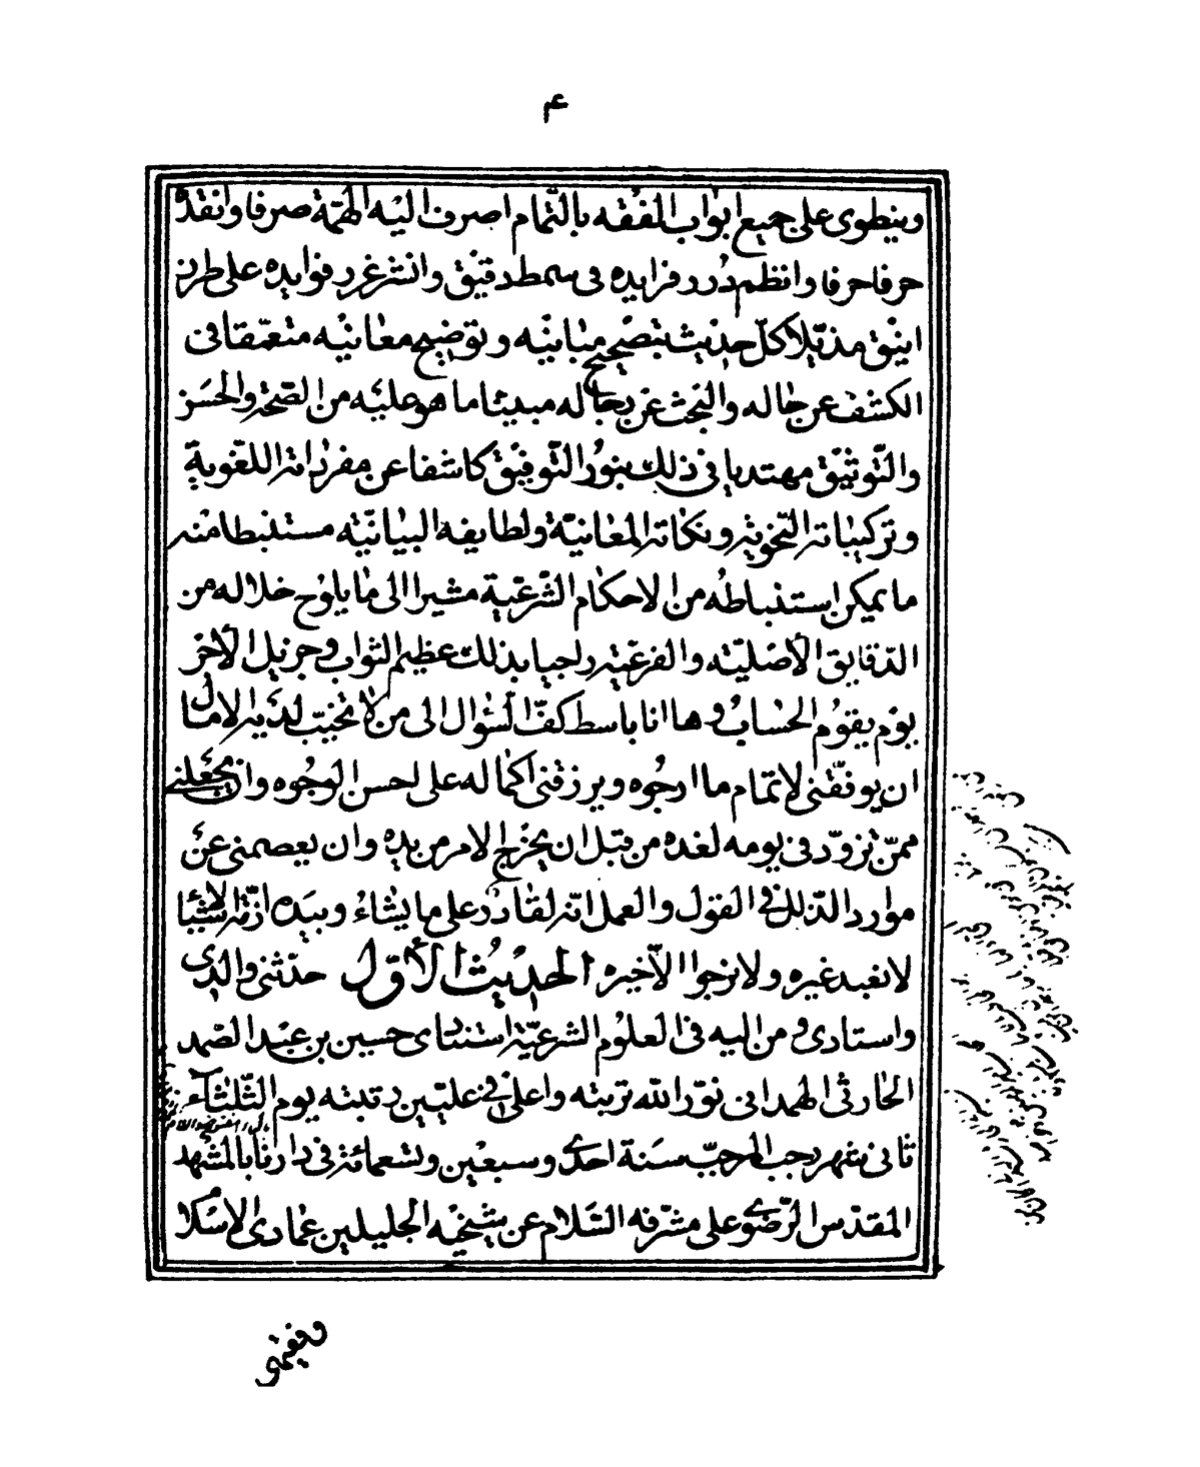 ۴
وينطوى على جميع ابواب الفقه بالتّمام اصرف اليه الهمّة صرفا وانقده
حرفا حرفا وانظم دُرر فرايده فى سمط دقيق وانثر غرر فوايده على طرز
انيق مذيّلا كلّ حديث بتصحيح مبانيه وتوضيح معانيه متعمّقا فى
الكشف عن حاله والبحث عن رجاله مبديا ما هو عليه من الصّحّة والحسَن
والتّوثيق مهتديا فى ذلك بنُور التّوفيق كاشفا عن مفرداته اللغويّة
وتركيباته النّحويّة ونكاته المعانيّة ولطايفه البيانيّة مستنبطا منه
ما يمكن استنباطه من الاحكام الشّرعيّة مشيرا الى ما يلوح خلاله من
الدّقايق الأصليّة والفرعيّة راجيا بذلك عظيم الثواب وجزيل الأجر
يوم يقوُم الحسابُ وها انا باسط كفّ السُّؤال الى من لا تخيب لديه الامال
ان يوفّقنى لاتمام ما ارجُوه ويرزقنى اكماله على احسن الوجُوه وان يجعلنى
ممّن تزوّد فى يومه لغده من قبل ان يخرج الامر من يده وان يعصمنى عن
موارد الذّلل فى القول والعمل انّه لقادر على ما يشاءُ وبيَده ازمّة الاشيا
لا نعبد غيره ولا نرجوا الّا خيره الحديثُ الأوّل حدّثنى والدى
واستادى ومن اليه فى العلوُم الشرعيّة استنادى حسين بن عبْد الصّمد
الحارثى الهمدانى نوّر الله تربته واعلى فى عليّين رتبته يوم الثّلثاء
ثانى شهر رجب المرجّب سَنة احدى وسبعين وتسعمائة فى دارنا بالمشهد
المقدّس الرّضوى على مشرّفه السّلام عن شيخيْه الجليلين عمادى الاسلا